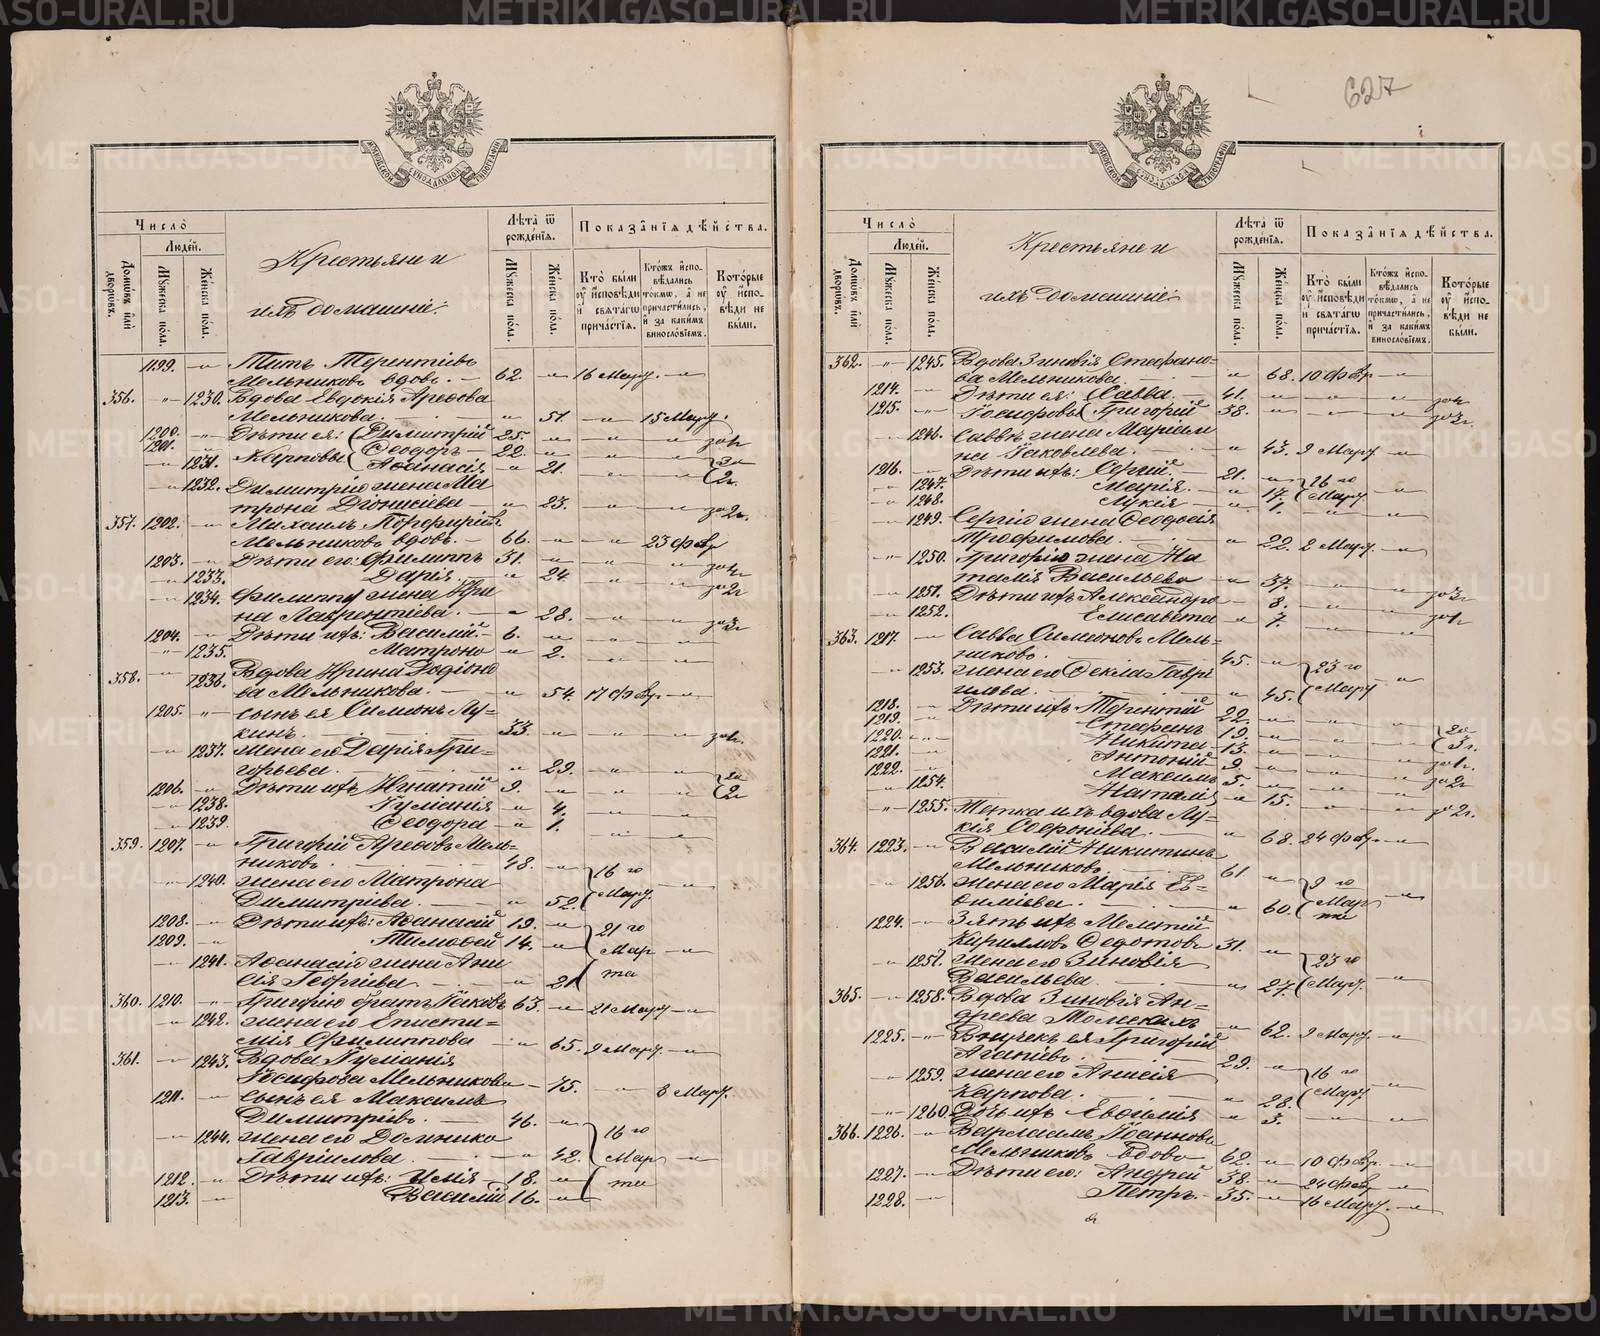 627
Число̀
Людей.
Домовъ или дворовъ.
Мужеска пола.
Женска пола.
Крестьяне и
ихъ домашніе.
Лѣта ѿ рожденїя.
Мужеска пола.
Женска пола.
Показанїя дѣйства.
Кто были у исповѣди и святагѡ причастїя.
Ктожъ исповѣдались токмѡ, а не причастились, и за какимъ винословїемъ.
Которые у исповѣди не были.
1199. Титъ Терентіевъ
Мельниковъ вдовъ. 62. 16 Мар.
356. 1230. Вдова Евдокія Арефова
Мельникова. 51. 15 Мар.
1200. Дѣти ея: Димитрій 25.
1201. Карповы Ѳеодоръ 22.
1231. Аѳанасія 21.
1232. Димитрія жена Ма
трона Діонисіева 23.
357. 1202. Михаилъ Порфирьевъ
Мельниковъ вдовъ. 66. 23 фев.
1203. Дѣти его: Филиппъ 31.
1233. Дарія. 24.
1234. Филиппа жена Ири
на Лаврентіева. 28.
1204. Дѣти ихъ: Василій. 6.
1235. Матрона 2.
358. 1236. Вдова Ирина Родіоно
ва Мельникова. 54. 17 фев.
1205. сынъ ея Симеонъ Лу-
кинъ. 33.
1237. Жена его Дарія Гри-
горьева. 29.
1206. Дѣти ихъ Игнатій 9.
1238. Іуліанія 4.
1239. Ѳеодора 1.
359. 1207. Григорій Арефовъ Мель-
никовъ. 48. 16 го
1240. жена его Матрона
Димитріева. 52. Мар.
1208. Дѣти ихъ: Аѳанасій 19. 21 го
1209. Тимофей 14. Мар
1241. Аѳанасія жена Ани
сія Георгіева. 21 та
360. 1210. Григорію братъ Іаковъ 63. 21 Мар.
1242. жена его Еписти-
мія Филиппова 65. 9 Мар.
361. 1243. Вдова Іуліанія
Іосифова Мельникова 75. 8 Мар.
1211. сынъ ея Максимъ
Димитріевъ. 46. 16 го
1244. жена его Домника
Гавріилова. 42. Мар
1212. Дѣти ихъ: 18. та
1213. Василій 16.
Число̀
Людей.
Домовъ или дворовъ.
Мужеска пола.
Женска пола.
Крестьяне и
ихъ домашніе.
Лѣта ѿ рожденїя.
Мужеска пола.
Женска пола.
Показанїя дѣйства.
Кто были у исповѣди и святагѡ причастїя.
Ктожъ исповѣдались токмѡ, а не причастились, и за какимъ винословїемъ.
Которые у исповѣди не были.
362. 1245. Вдова Зиновія Стефано-
ва Мельникова. 68. 10 фев.
1214. Дѣти ея: Савва. 41.
1215. Іосифовы Григорій 38.
1246. Саввы жена Маріам
на Іаковлева. 43. 9 Мар.
1216. Дѣти ихъ: Сергій. 21.
1247. Марія. 17. 16 го
1248. Лукія 1. Мар.
1249. Сергія жена Ѳеодосія
Трофимова. 22. 2 Мар.
1250. Григорію жена На
талія Васильева 37.
1251. Дѣти ихъ Александра 8.
1252. Елисавета 7.
363. 1217. Савва Симеоновъ Мель-
никовъ. 45. 23 го
1253. жена его Ѳекла Гаврі
илова. 45. Мар.
1218. Дѣти ихъ Терентій 22.
1219. Стефанъ 19.
1220. Никита 13.
1221. Антоній 9.
1222. Максимъ 5.
1254. Наталія 15.
1255. Тетка ихъ вдова Лу-
кія Софоніева. 68. 24 фев.
364. 1223. Василій Никитинъ
Мельниковъ. 61. 9 го
1256. жена его Марія Ев-
фиміева. 60. Мар
та
1224. Зять ихъ Мелетій
Кирилловъ Федотовъ 31. 23 го
1257. Жена его Зиновія
Васильева. 27. Мар.
365. 1258. Вдова Зиновія Ан-
дреева 62. 9 Мар.
1225. Внучекъ ея Григорій
29. 16 го
1259. жена его Анисія
Карпова. 28. Мар.
1260. Дочь ихъ Евфимія 3.
366. 1226. Варлаамъ Іоанновъ
Мельниковъ вдовъ 62. 10 фев.
1227. Дѣти его: Андрей 38. 24 фев.
1228. Петръ. 35. 16 Мар.